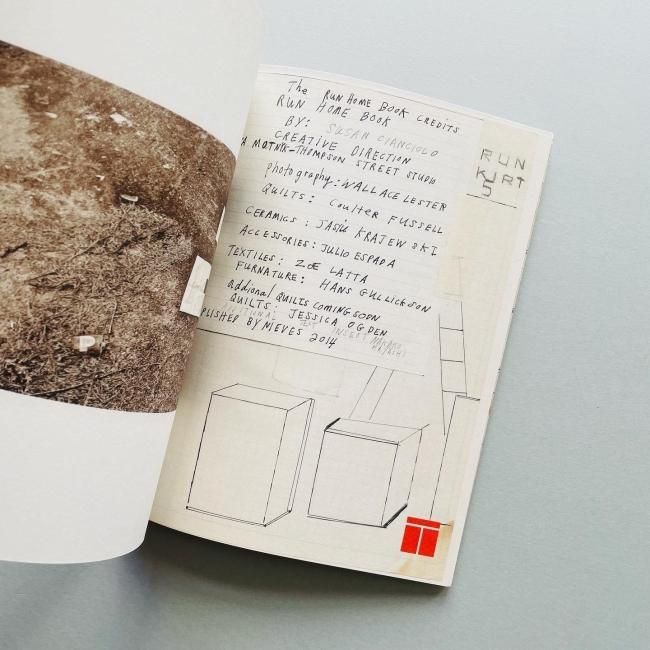 The RUN HOME BOOK CREDITS
RUN HOME BOOK
BY: SUSAN CIANCIOLO
CREATIVE DIRECTION
THOMPSON STREET STUDIO
photography: WALLACE LESTER
QUILTS: Coulter FUSSELL
CERAMICS: JASIU KRAJEWSKI
ACCESSORIES: JULIO ESPADA
TEXTILES: ZOE LATTA
FURNATURE: HANS GULLICKSON
addional QUILTS COMING SOON
QUILTS: JESSICA OGDEN
TEXT INSERT
PLISHED BY NIEVES 2014
RUN
KURT
S